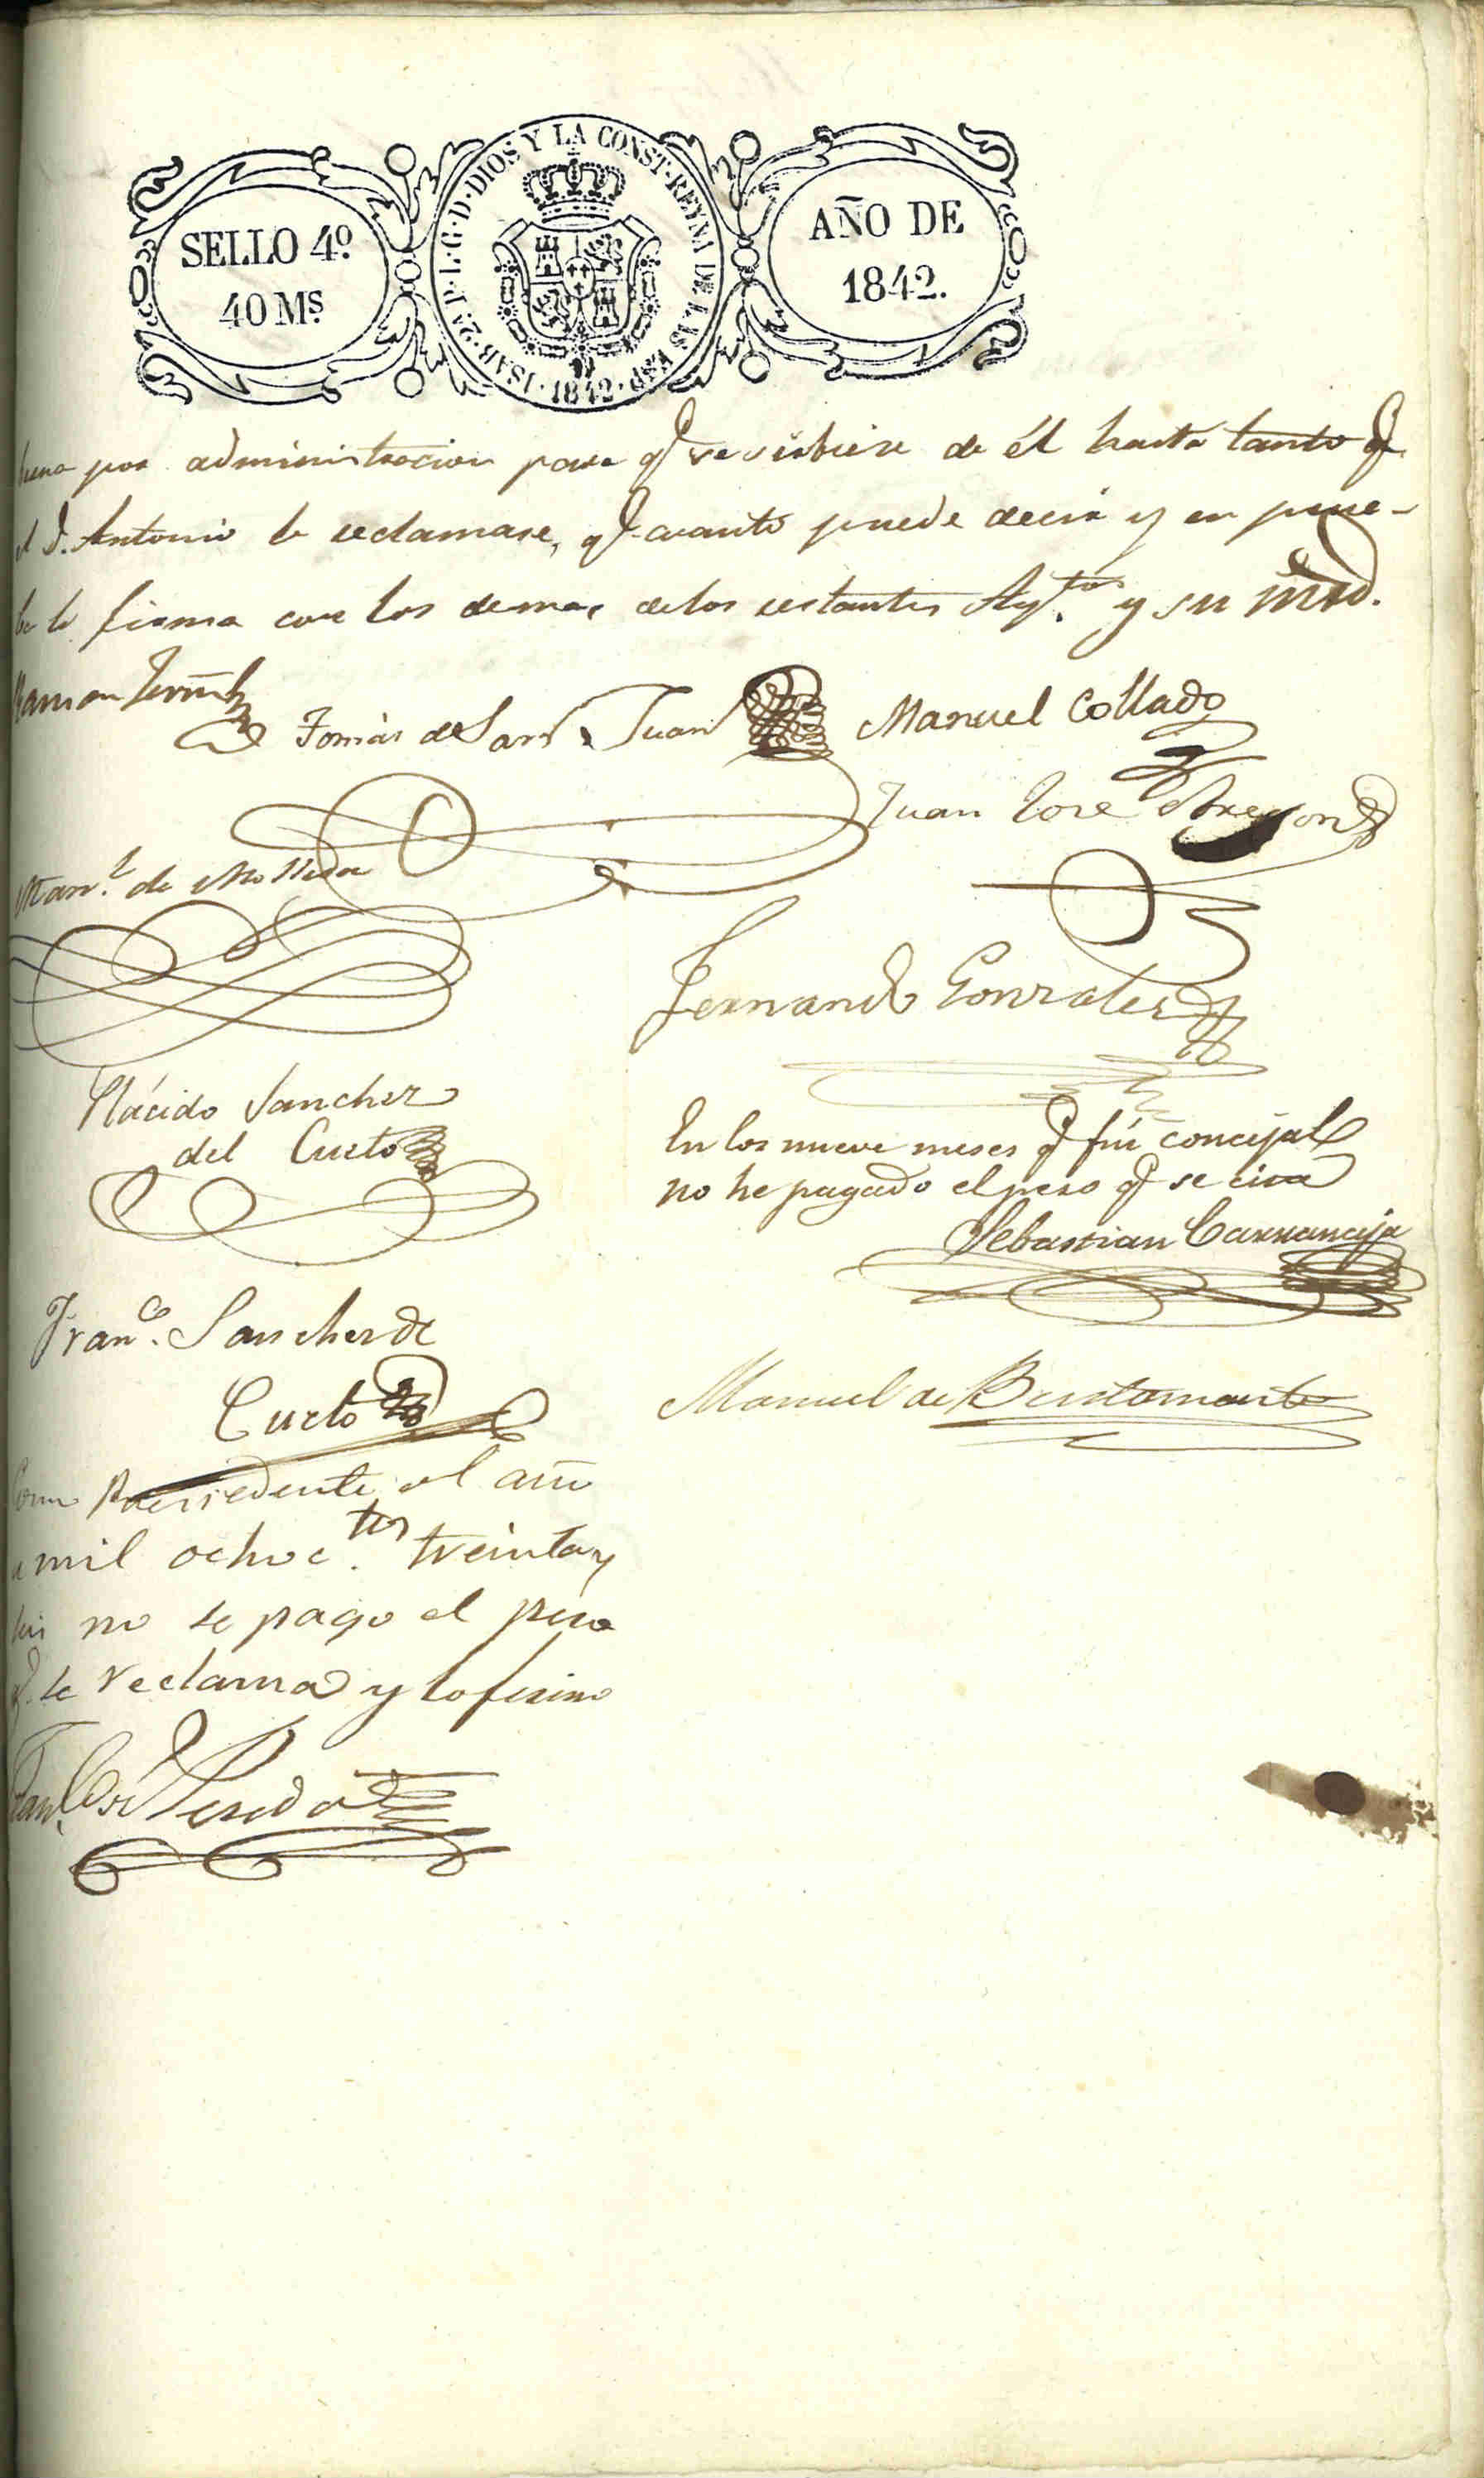 SELLO 4º
40 Mˢ
ISAB·2ª·P·L·G·D·DIOS Y LA CONST·REYNA DE LAS ESP·
1842
AÑO DE
1842.
por administracion para q̃ se sirbiese de él hasta tanto q̃
el D. Antonio lo reclamase, q̃ cuanto puede decir y en prue-
ba lo firma con los demas de los restantes Ayᵗᵒˢ y su mrd.
Ramon
Tomás de San Juan
Manuel Collado
Juan Jose Obregon
Manˡ de Molleda
Fernando Gonzalez
Plácido Sanchez
del Cueto
En los nueve meses q̃ fui concejal
no he pagado el peso q̃ se cita
Sebastian Carranceja
Franᶜᵒ Sanchez de
Cueto
Manuel de Bustamante
Como Presidente el año
mil ochocᵗᵒˢ treinta y
no se pago el peso
q̃ se reclama y lo firmo
Peredo